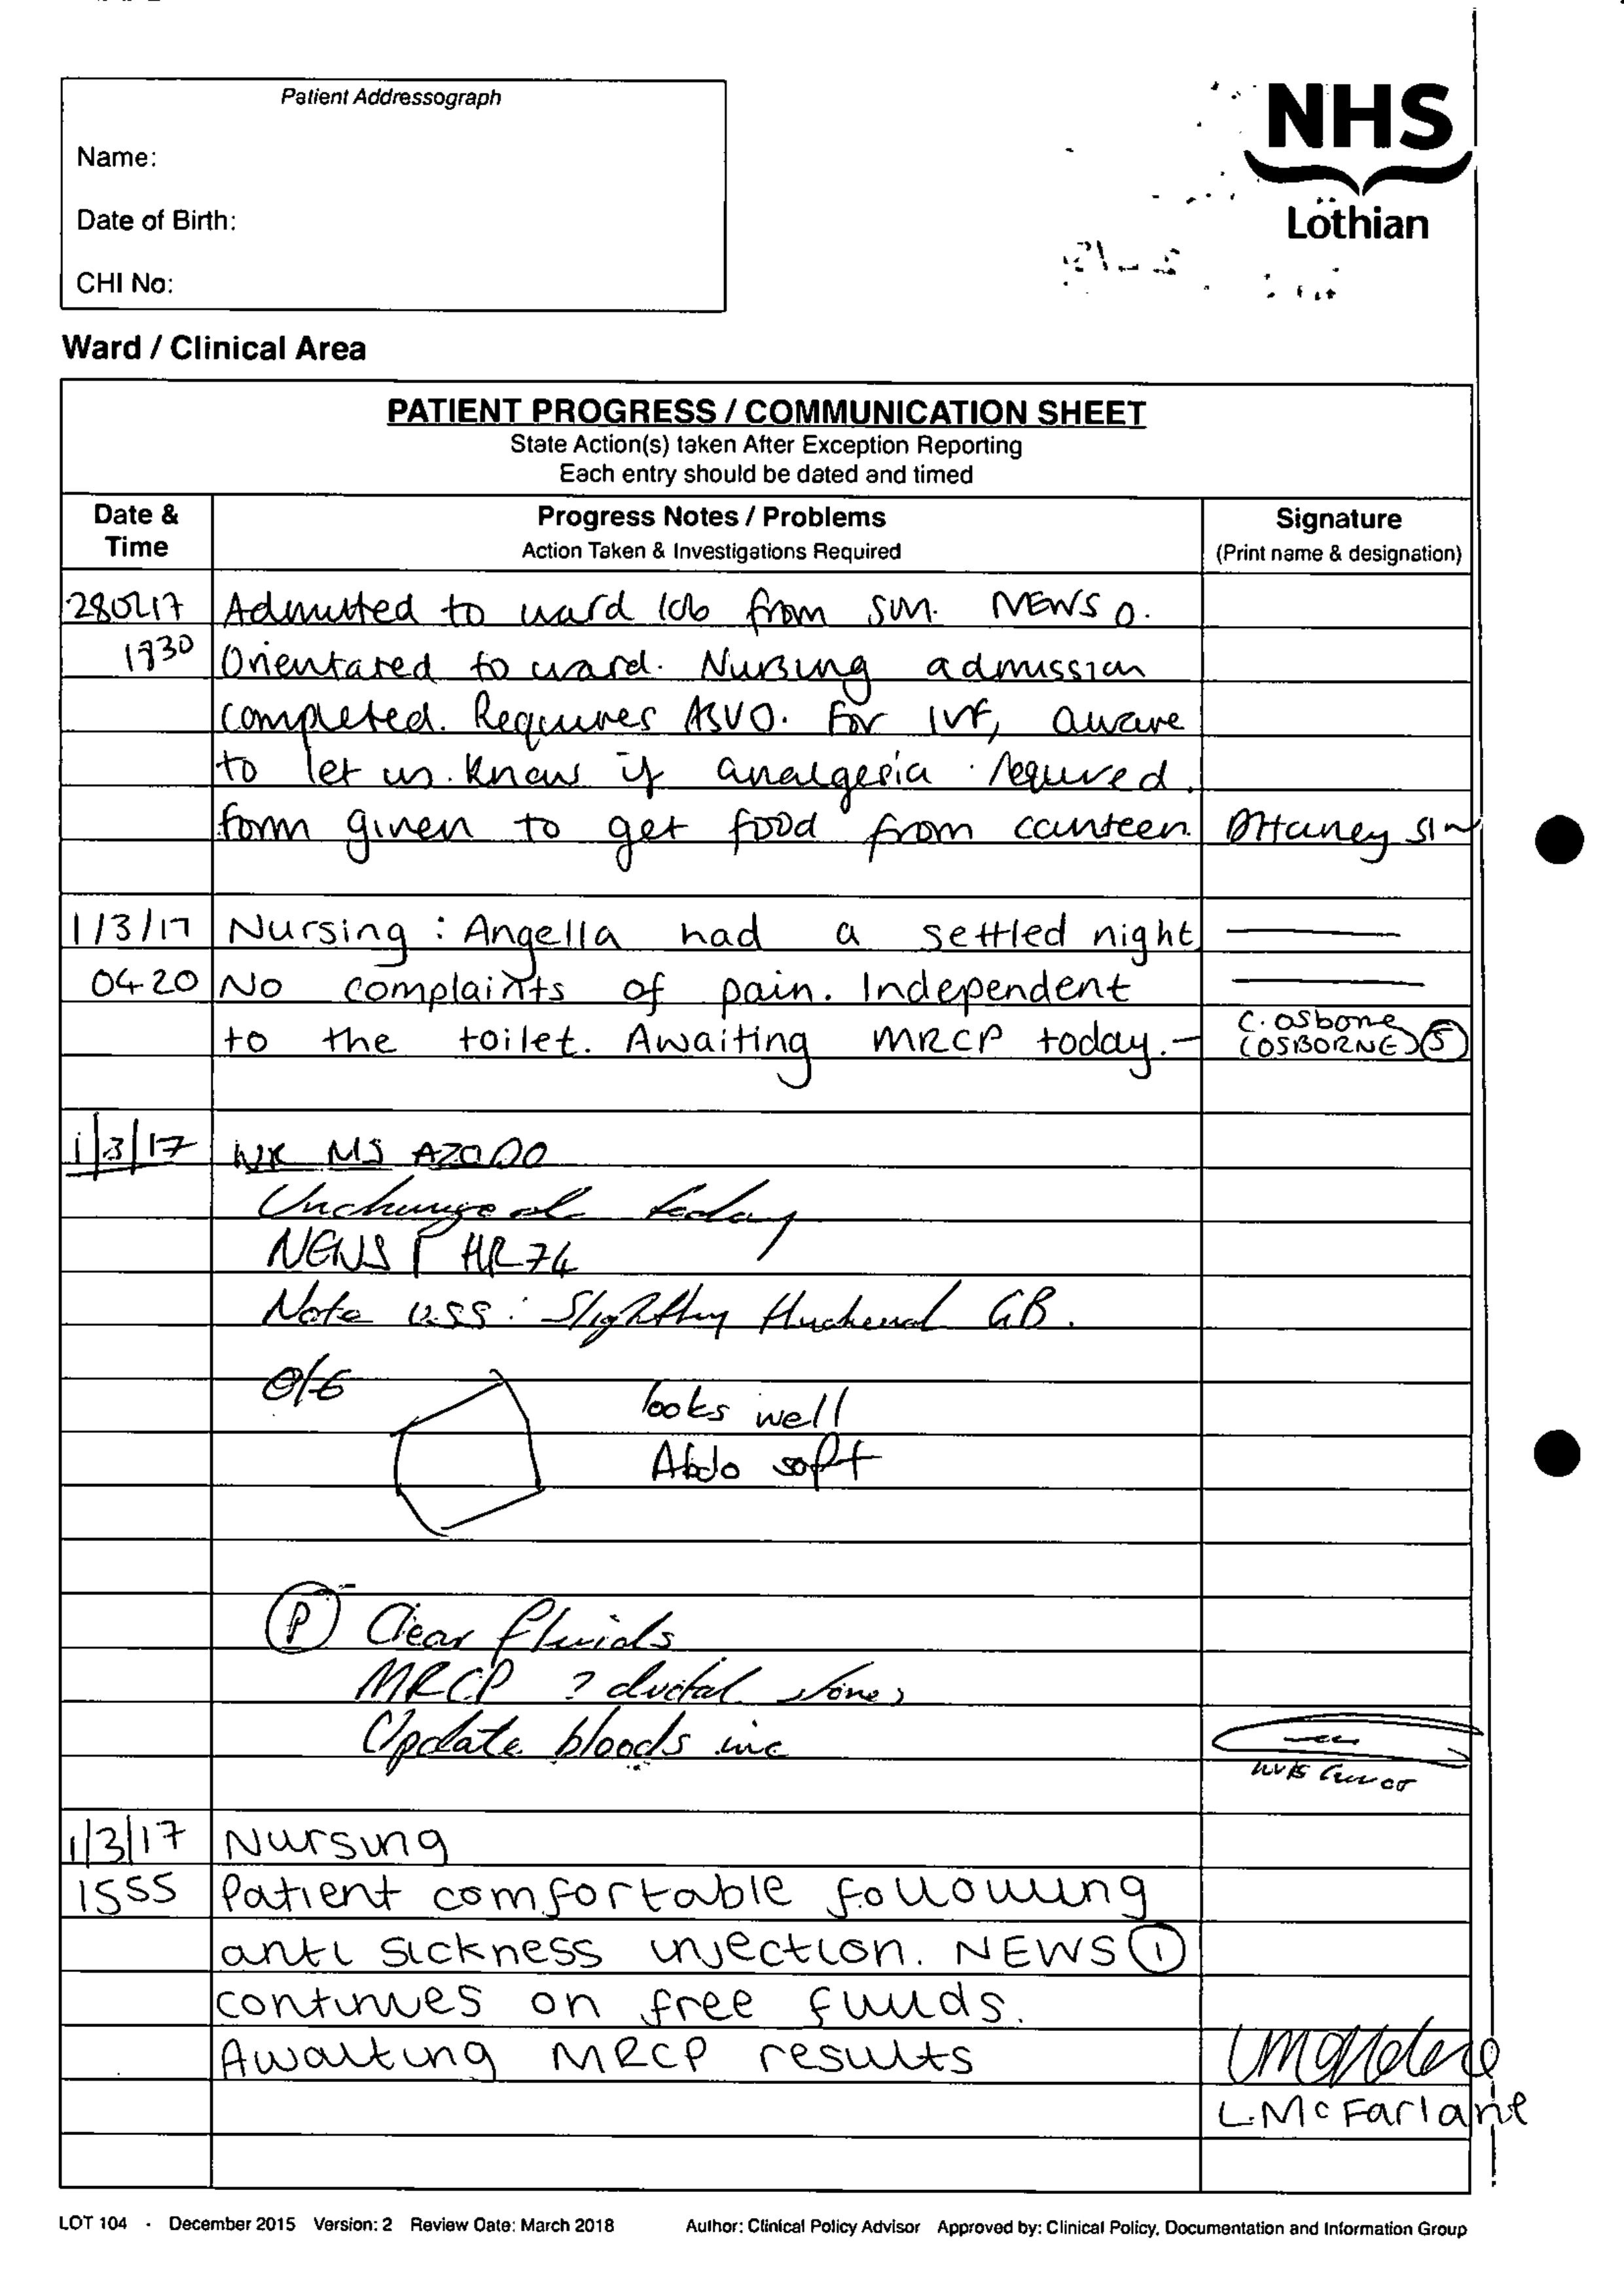 Patient Addressograph
Name:
Date of Birth:
CHI No:
NHS
Lothian
Ward / Clinical Area
PATIENT PROGRESS / COMMUNICATION SHEET
State Action(s) taken After Exception Reporting
Each entry should be dated and timed
Date & Time
Progress Notes / Problems
Action Taken & Investigations Required
Signature
(Print name & designation)
280217 Admitted to ward 106 from NEWS 0.
1830 Orientated to ward. Nursing admission
completed. Requires For IVF, aware
to let us know if analgesia required.
form given to get food from canteen.
1/3/17 Nursing : Angella had a settled night
0420 No complaints of pain. Independent
to the toilet. Awaiting MRCP today. - C. Osbone
(OSBORNE) 5
1/3/17 WR MS AZODO
Unchanged today
NEWS 1 HR 74
Note USS : Slightly thickened GB.
O/E
looks well
Abdo soft
P Clear fluids
MRCP ? ductal stones
Update bloods inc
1/3/17 Nursing
1555 Patient comfortable following
anti sickness injection. NEWS 1
continues on free fluids.
Awaiting MRCP results
L. McFarlane
LOT 104 - December 2015 Version: 2 Review Date: March 2018 Author: Clinical Policy Advisor Approved by: Clinical Policy, Documentation and Information Group